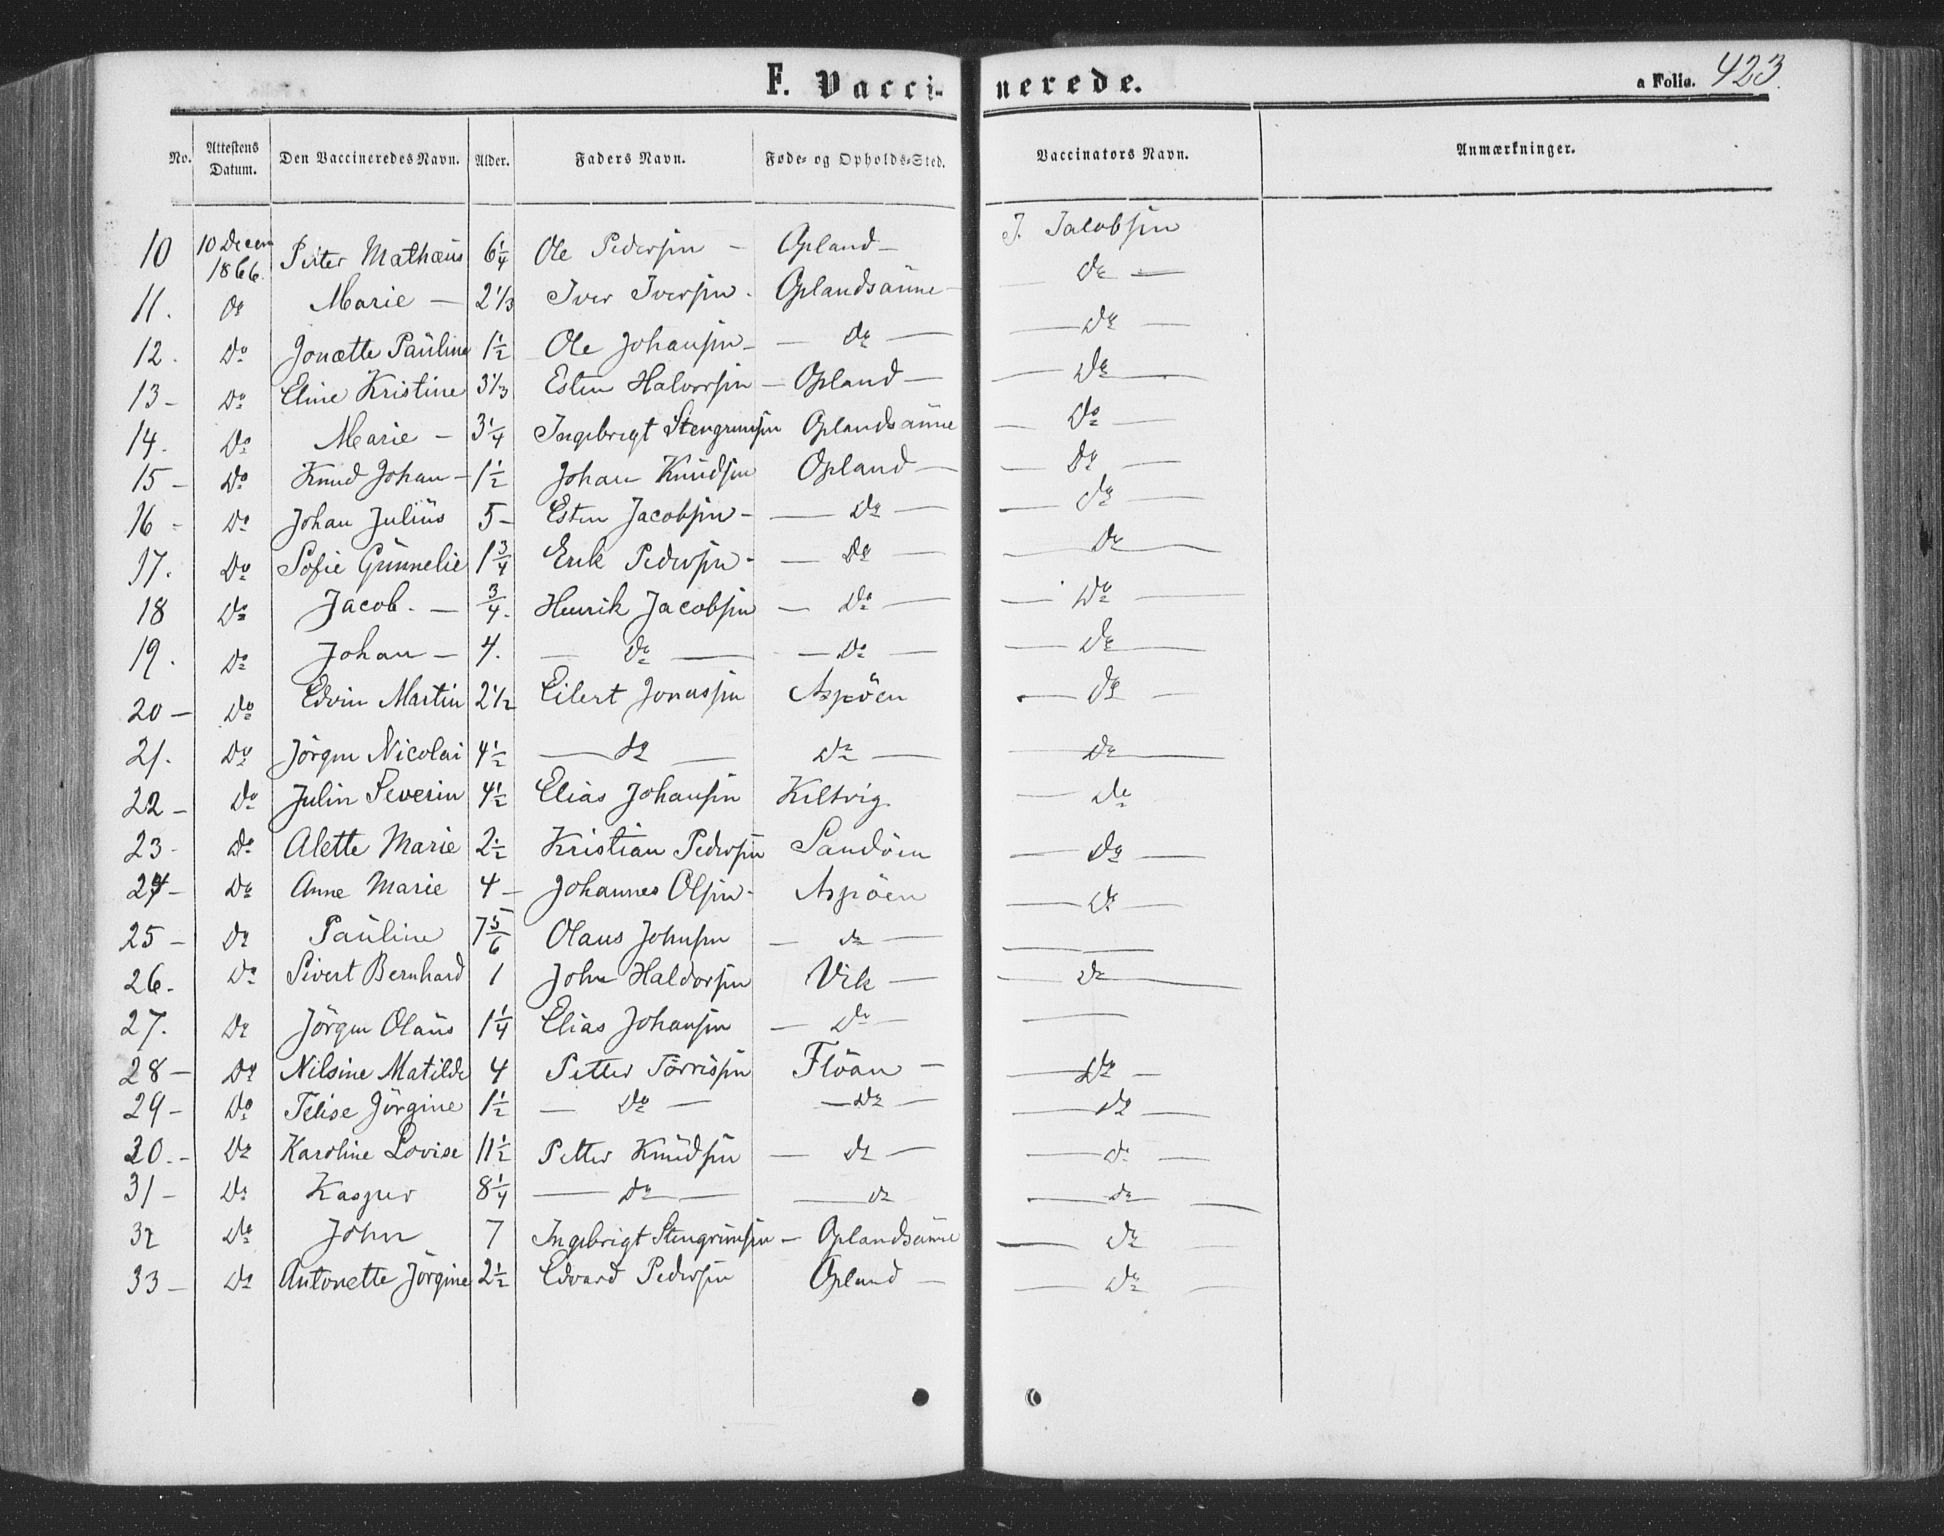 F. Vacci-nerede. a Folio. 423.
No. Attestens Datum. Den Vaccineredes Navn. Alder. Faders Navn. Føde- og Opholds-Sted. Vaccinators Navn. Anmærkninger.
10 10 Decem 1866. Peter Mathæus 6 1/4 Ole Pedersen — Opland — J. Jacobsen
11. Do Marie — 2 1/3 Iver Iversen. Oplandsaune — Do —
12. Do Jonætte Pauline 1 1/2 Ole Johansen — — Do — — Do —
13 - Do Eline Kristine 3 1/3 Esten Halvorsen — Opland — — Do —
14. Do Marie — 3 1/4 Ingebrigt Stengrimsen Oplandsaune — Do —
15 - Do Knud Johan - 1 1/2 Johan Knudsen Opland — — Do —
16 - Do Johan Julius 5 - Esten Jacobsen - — Do — — Do —
17. Do Sofie Gunnelie 1 3/4 Erik Pedersen - — Do — — Do —
18 Do Jacob. — 3/4. Henrik Jacobsen — Do — — Do —
19. Do Johan — 4. — Do — — Do — — Do —
20 — Do Edvin Martin 2 1/2 Eilert Jonassen Aspöen — Do —
21. Do Jörgen Nicolai 4 1/2 — Do — Do — — Do —
22 - Do Julin Severin 4 1/2 Elias Johansen Kiltvig. — Do
23 - Do Alette Marie 2 1/2 Kristian Pedersen Sandöen — Do —
24 - Do Anne Marie 4 — Johannes Olsen - Aspöen — Do —
25 - Do Pauline 7 5/6 Olaus Johnsen — Do — ———
26. Do Sivert Bernhard 1 John Haldorsen Vik — — Do —
27. Do Jörgen Olaus 1 1/4 Elias Johansen — Do — ———
28 - Do Nilsine Matilde 4 Petter Torrisen Flöan — — Do —
29 - Do Felise Jörgine 1 1/2 — Do — — Do — — Do —
30. - Do Karoline Lovise 11 1/2 Petter Knudsen — Do — — Do —
31 - Do Kasper 8 1/4 — Do — — Do — Do —
32 Do John 7 Ingebrigt Stengrimsen — Oplandsaune — Do —
33 - Do Antonette Jörgine 2 1/2 Edvard Pedersen Opland — — Do —